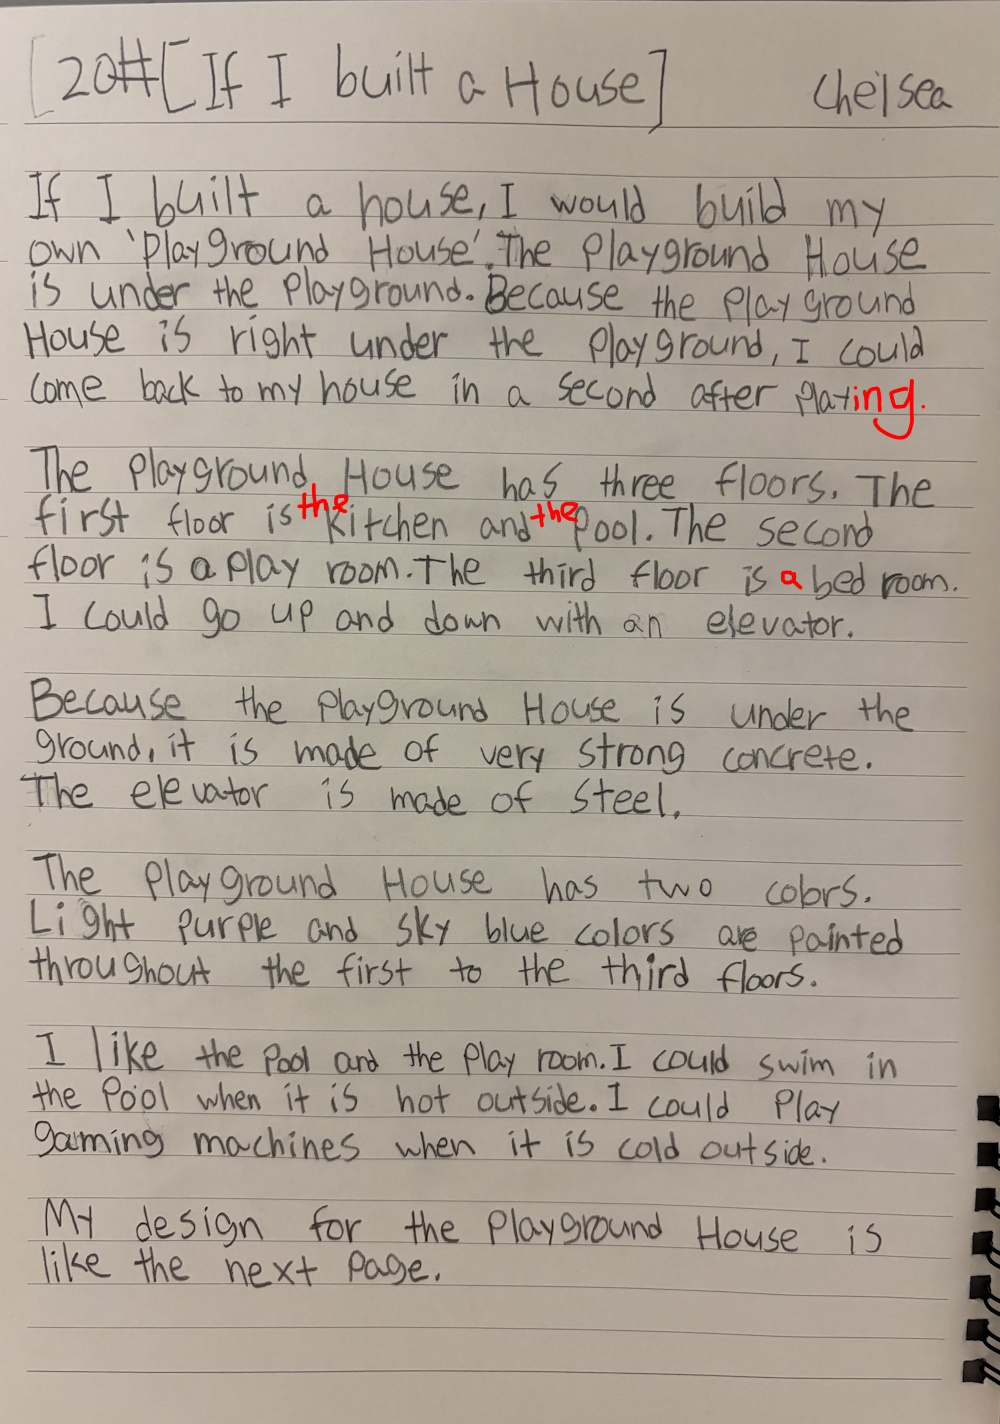 [20# [If I built a House] Chelsea
If I built a house, I would build my
own 'Playground House'. The Playground House
is under the Playground. Because the Playground
House is right under the Playground, I could
come back to my house in a second after Playing.
The Playground House has three floors. The
first floor is the kitchen and the Pool. The second
floor is a Play room. The third floor is a bed room.
I could go up and down with an elevator.
Because the Playground House is under the
ground, it is made of very strong concrete.
The elevator is made of steel.
The Playground House has two colors.
Light Purple and sky blue colors are painted
throughout the first to the third floors.
I like the Pool and the Play room. I could swim in
the Pool when it is hot outside. I could Play
gaming machines when it is cold outside.
My design for the Playground House is
like the next Page.